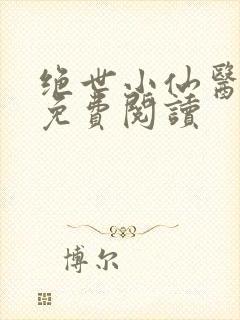 绝世小仙醫
免費閱讀
博尔